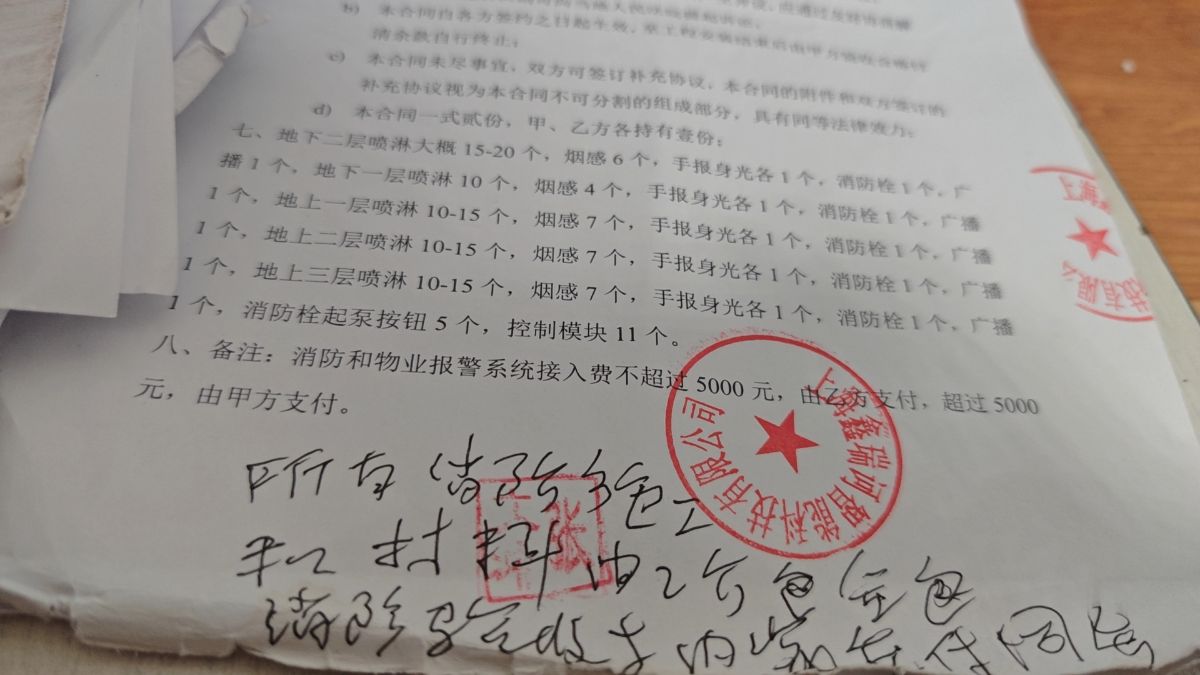 b) 本合同自各方签约之日起生效，至工程安装结束后由甲方
清余款自行终止；
c) 本合同未尽事宜，双方可签订补充协议，本合同的附件和双方签订的
补充协议视为本合同不可分割的组成部分，具有同等法律效力；
d) 本合同一式贰份，甲、乙方各持有壹份；
七、地下二层喷淋大概 15-20 个，烟感 6 个，手报身光各 1 个，消防栓 1 个，广
播 1 个，地下一层喷淋 10 个，烟感 4 个，手报身光各 1 个，消防栓 1 个，广播
1 个，地上一层喷淋 10-15 个，烟感 7 个，手报身光各 1 个，消防栓 1 个，广播
1 个，地上二层喷淋 10-15 个，烟感 7 个，手报身光各 1 个，消防栓 1 个，广播
1 个，地上三层喷淋 10-15 个，烟感 7 个，手报身光各 1 个，消防栓 1 个，广播
1 个，消防栓起泵按钮 5 个，控制模块 11 个。
八、备注：消防和物业报警系统接入费不超过 5000 元，由乙方支付，超过 5000
元，由甲方支付。
所有消防
和材料由乙方包
消防验收
上海鑫瑞河智能科技有限公司
上海
技有限公